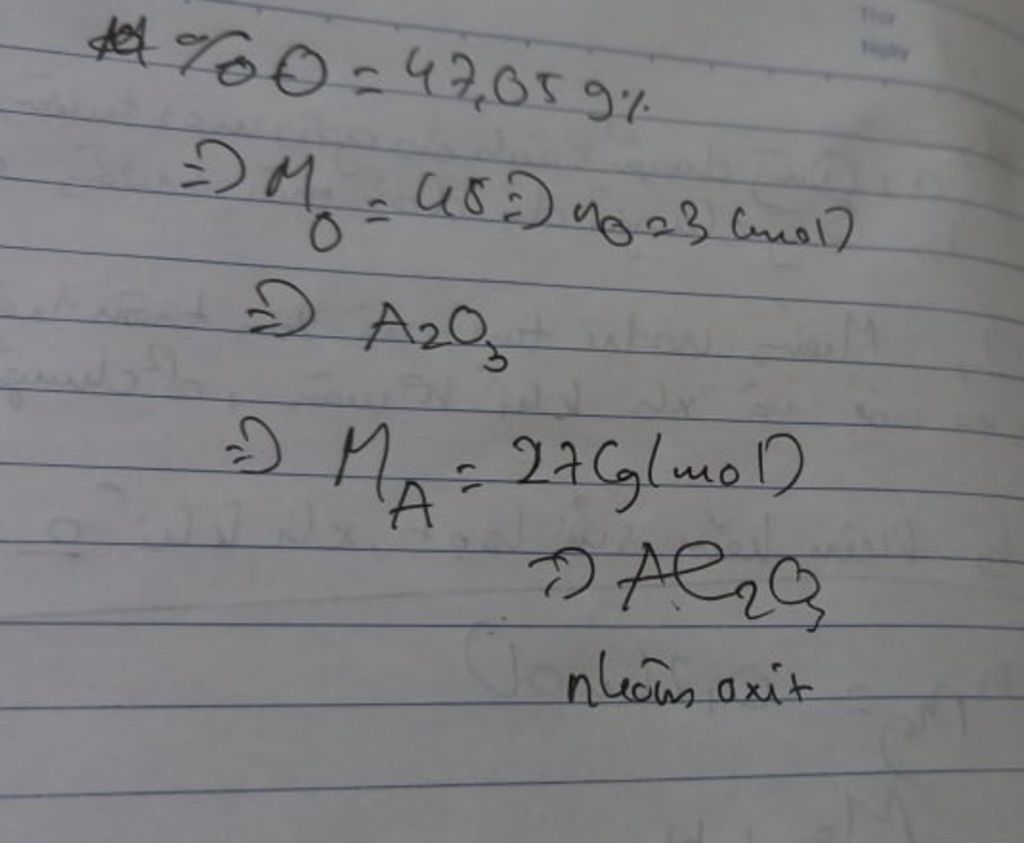 Thứ
Ngày
%O = 47,059%
=> M_O = 48 => n_O = 3 (mol)
=> A₂O₃
=> M_A = 27 (g/mol)
=> Al₂O₃
nhôm oxit